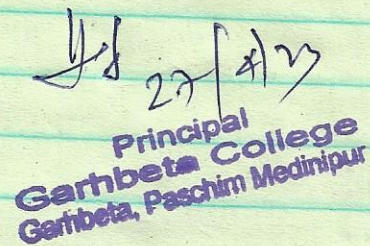 27/4/23
Principal
Garhbeta College
Garhbeta, Paschim Medinipur